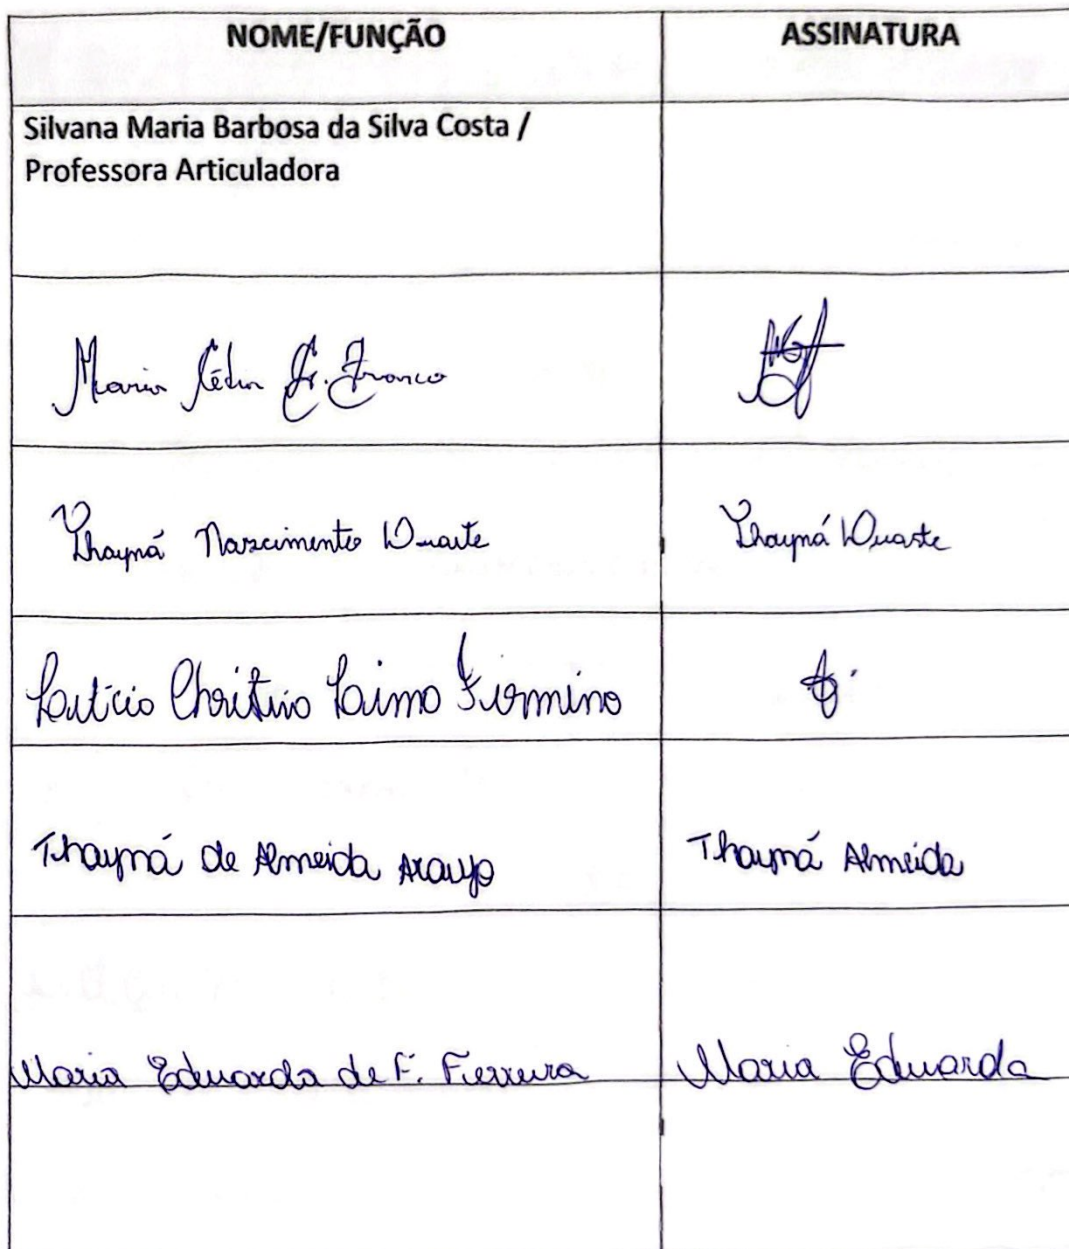 NOME/FUNÇÃO ASSINATURA
Silvana Maria Barbosa da Silva Costa /
Professora Articuladora
Maria Célia G. Franco
Thayná Nascimento Duarte Thayná Duarte
Firmino
Thayná de Almeida Araujo Thayná Almeida
Maria Eduarda de F. Ferreira Maria Eduarda